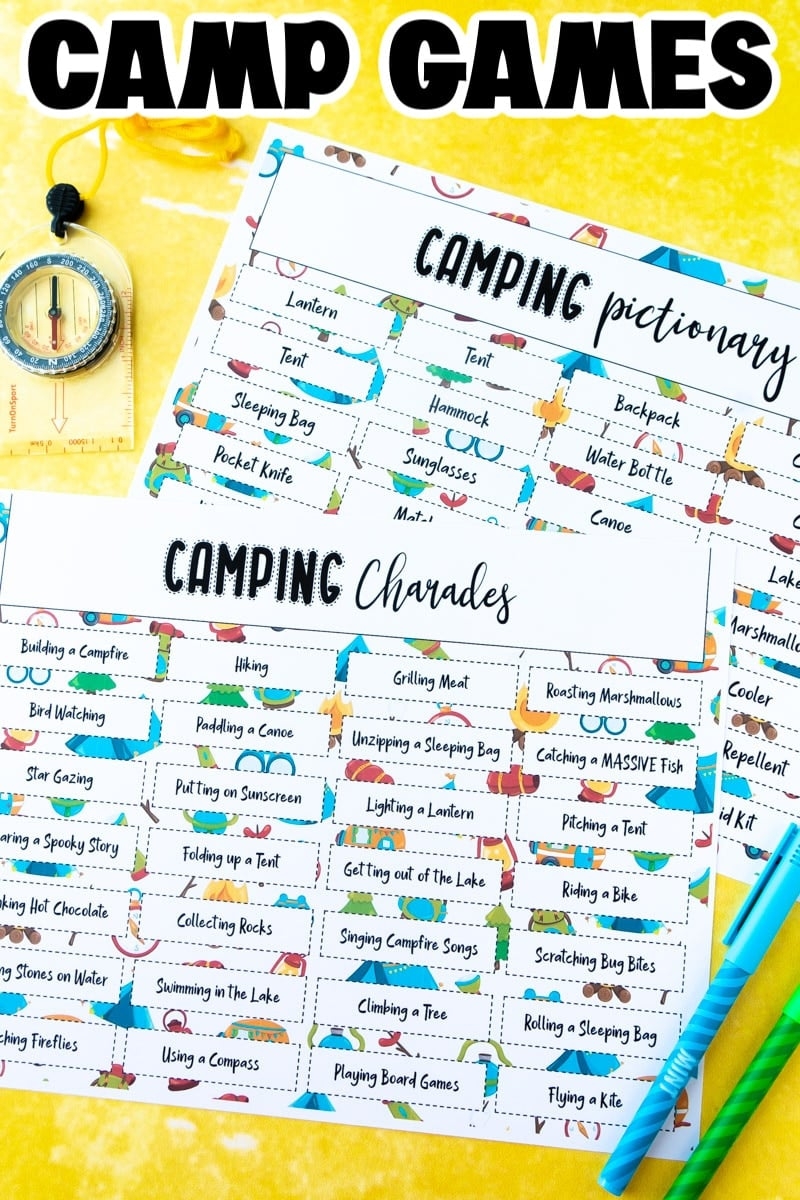 CAMP GAMES
CAMPING pictionary
Lantern
Tent
Tent
Sleeping Bag
Hammock
Backpack
Pocket Knife
Sunglasses
Water Bottle
Canoe
Lake
Marshmallow
Cooler
Repellent
Kit
CAMPING Charades
Building a Campfire
Hiking
Grilling Meat
Roasting Marshmallows
Bird Watching
Paddling a Canoe
Unzipping a Sleeping Bag
Catching a MASSIVE Fish
Star Gazing
Putting on Sunscreen
Lighting a Lantern
Pitching a Tent
aring a Spooky Story
Folding up a Tent
Getting out of the Lake
Riding a Bike
king Hot Chocolate
Collecting Rocks
Singing Campfire Songs
Scratching Bug Bites
ng Stones on Water
Swimming in the Lake
Climbing a Tree
Rolling a Sleeping Bag
ching Fireflies
Using a Compass
Playing Board Games
Flying a Kite
TurnOnSport